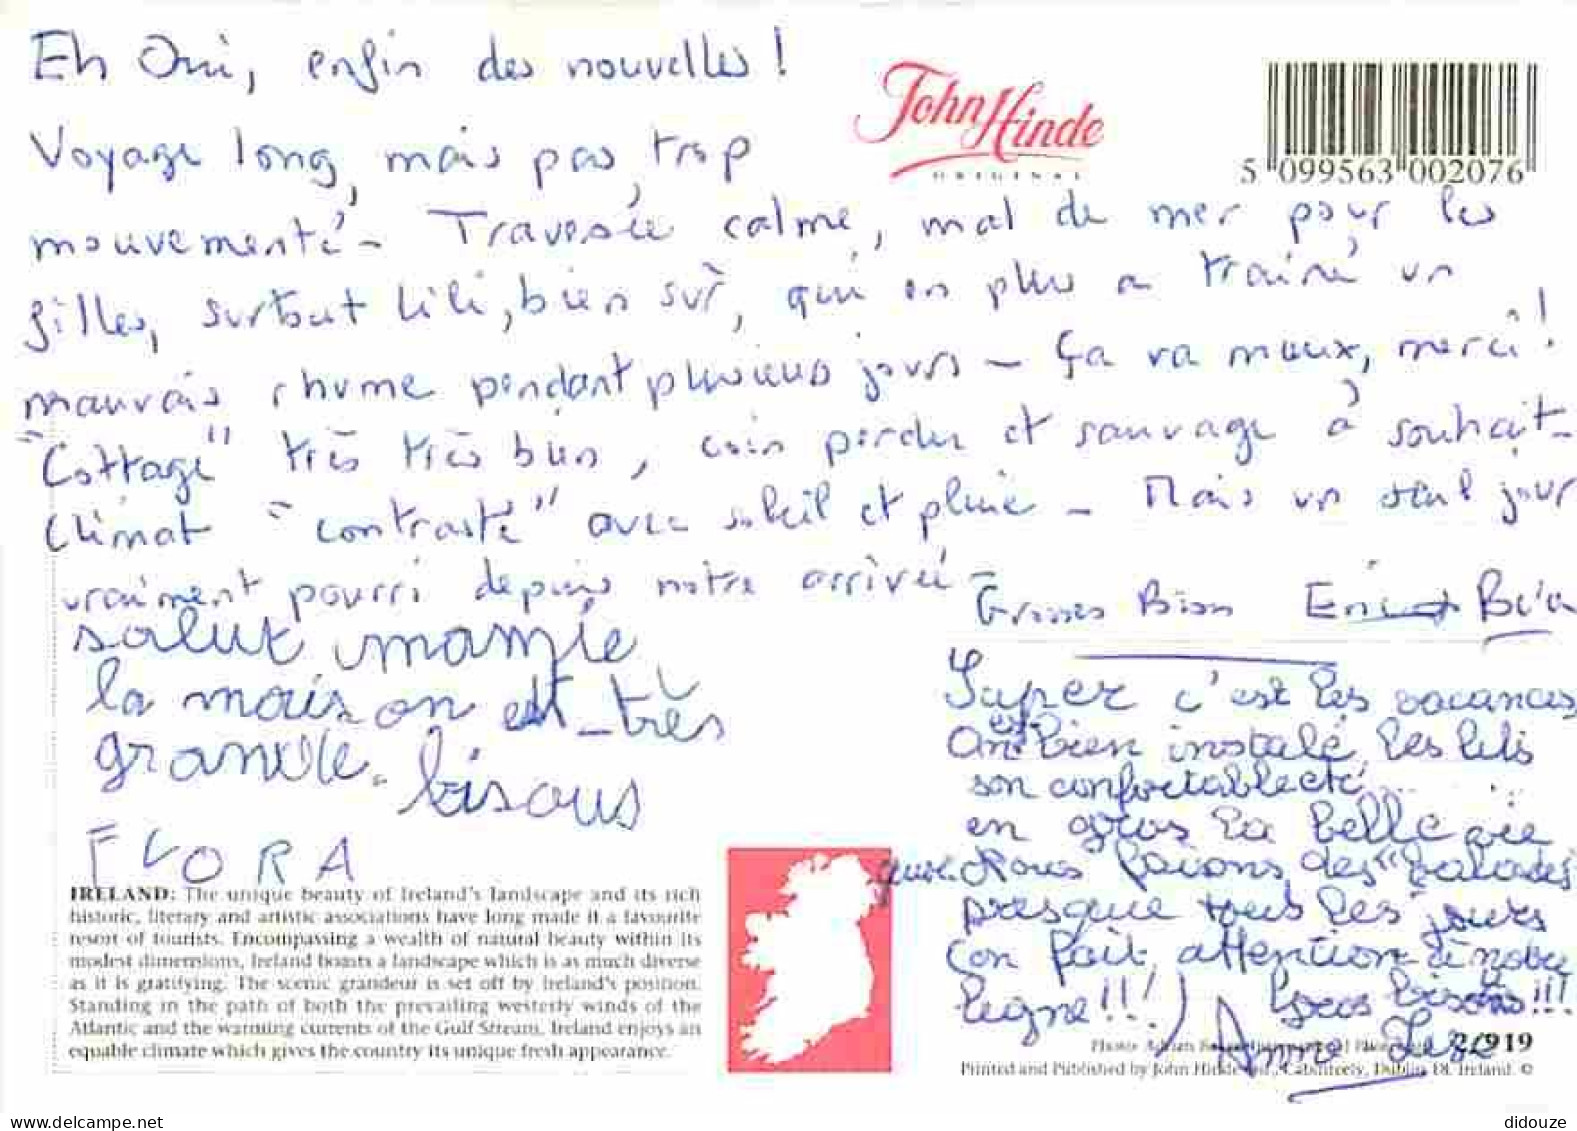 Eh Oui, enfin des nouvelles !
Voyage long, mais pas trop
mouvementé - Traversée calme, mal de mer pour les
filles, surtout Lili, bien sûr, qui en plus a trainé un
mauvais rhume pendant plusieurs jours - Ça va mieux, merci !
"Cottage" très très bien, coin perdu et sauvage à souhait -
Climat "contrasté" avec soleil et pluie - Mais un seul jour
vraiment pourri depuis notre arrivée -
Grosses Bises
John Hinde
ORIGINAL
5 099563 002076
salut mamie
la maison est très
grande. bisous
FLORA
Super c'est les vacances,
on est bien instalé, les lits
son confortable etc...
en gros la belle vie
Nous faisons des "balades"
presque tous les jours
(on fait attention à notre
ligne!!!) Gros bisous!!!
Anne Lise
IRELAND: The unique beauty of Ireland's landscape and its rich
historic, literary and artistic associations have long made it a favourite
resort of tourists. Encompassing a wealth of natural beauty within its
modest dimensions, Ireland boasts a landscape which is as much diverse
as it is gratifying. The scenic grandeur is set off by Ireland's position.
Standing in the path of both the prevailing westerly winds of the
Atlantic and the warming currents of the Gulf Stream, Ireland enjoys an
equable climate which gives the country its unique fresh appearance.
2/919
Printed and Published by John Hinde Ltd., Cabinteely, Dublin 18, Ireland. ©
didouze